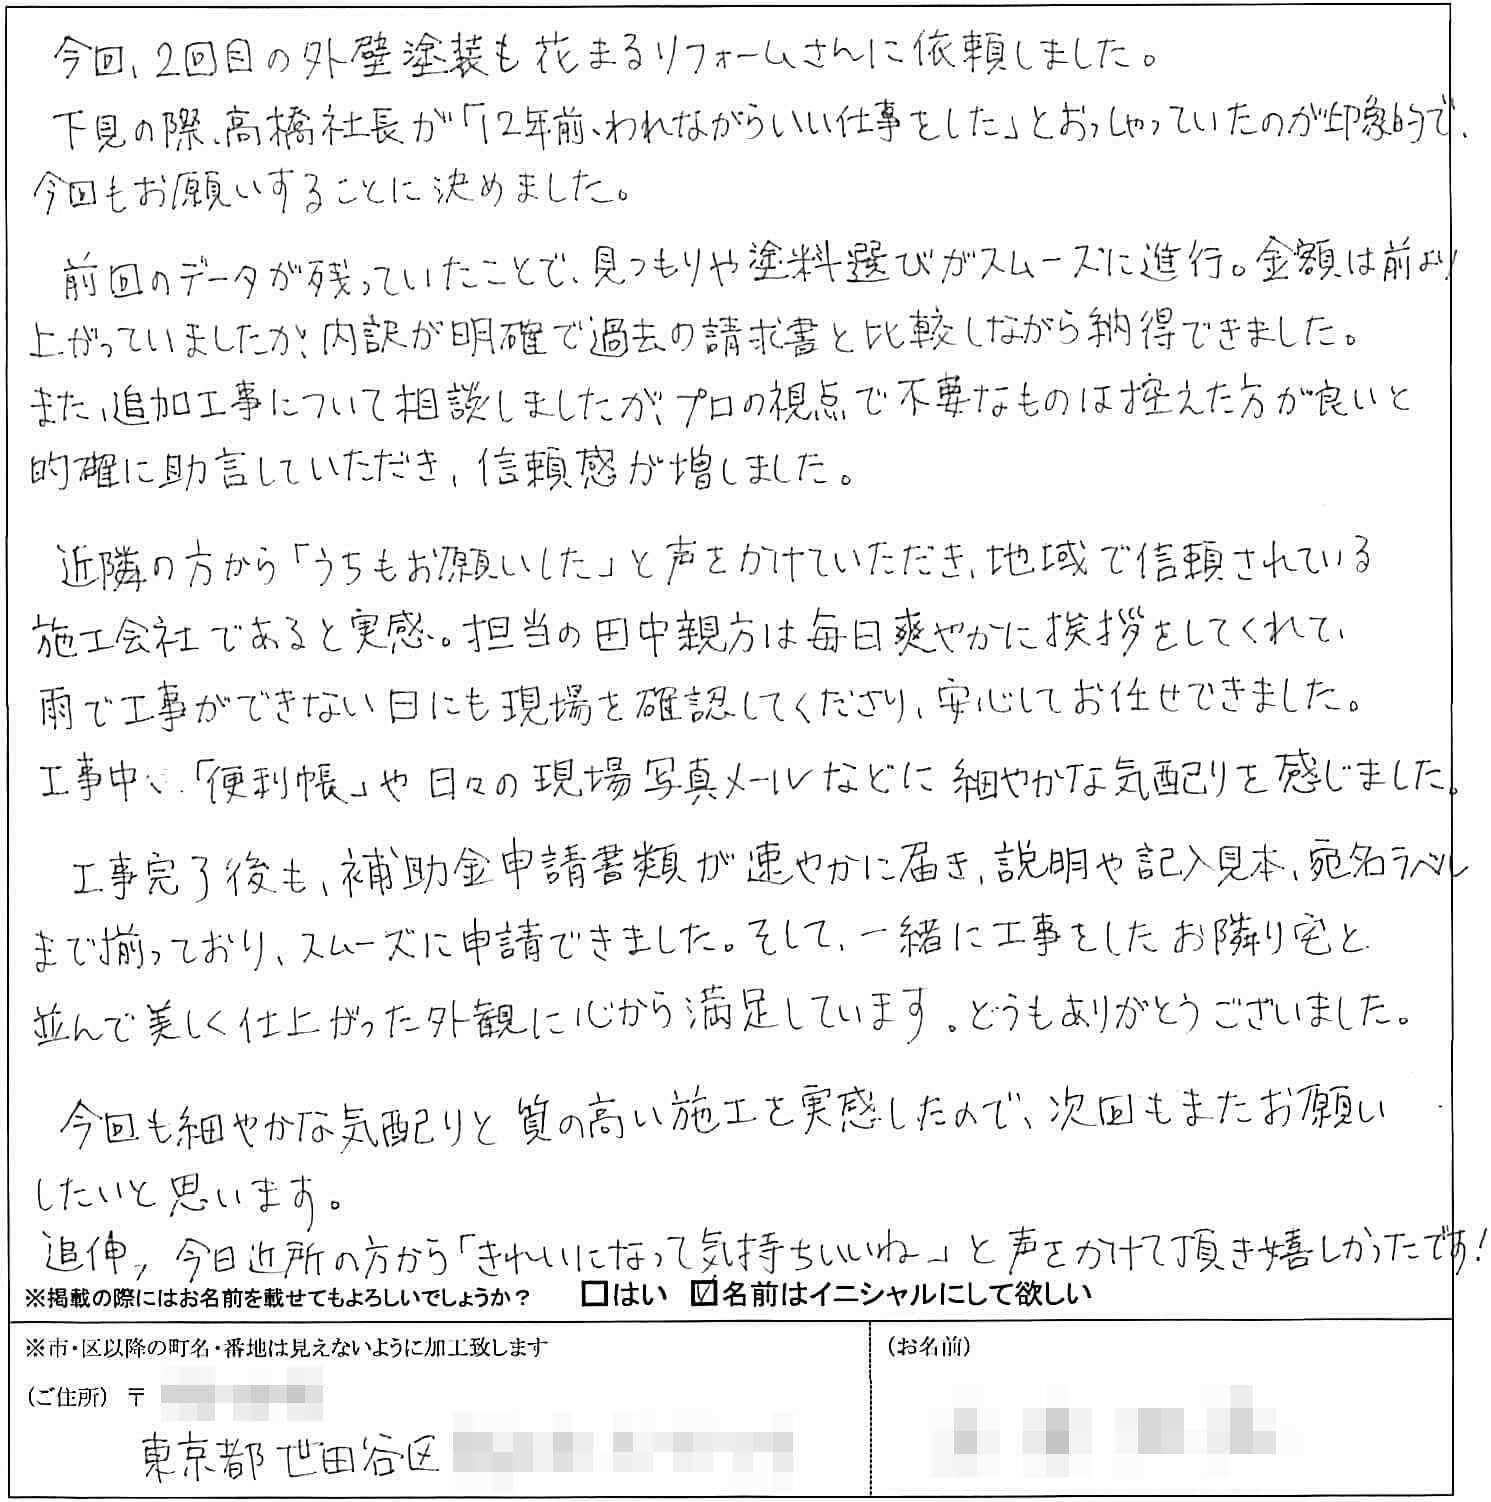 今回、2回目の外壁塗装も花まるリフォームさんに依頼しました。
下見の際、高橋社長が「12年前、われながらいい仕事をした」とおっしゃっていたのが印象的で、
今回もお願いすることに決めました。
前回のデータが残っていたことで、見つもりや塗料選びがスムーズに進行。金額は前より
上がっていましたが、内訳が明確で過去の請求書と比較しながら納得できました。
また、追加工事について相談しましたが、プロの視点で不要なものは控えた方が良いと
的確に助言していただき、信頼感が増しました。
近隣の方から「うちもお願いした」と声をかけていただき、地域で信頼されている
施工会社であると実感。担当の田中親方は毎日爽やかに挨拶をしてくれて、
雨で工事ができない日にも現場を確認してくださり、安心してお任せできました。
工事中、「便利帳」や日々の現場写真メールなどに細やかな気配りを感じました。
工事完了後も、補助金申請書類が速やかに届き、説明や記入見本、宛名ラベル
まで揃っており、スムーズに申請できました。そして、一緒に工事をしたお隣り宅と
並んで美しく仕上がった外観に心から満足しています。どうもありがとうございました。
今回も細やかな気配りと質の高い施工を実感したので、次回もまたお願い
したいと思います。
追伸, 今日近所の方から「きれいになって気持ちいいね」と声をかけて頂き嬉しかったです!
※掲載の際にはお名前を載せてもよろしいでしょうか? □はい ☑名前はイニシャルにして欲しい
※市・区以降の町名・番地は見えないように加工致します
(お名前)
(ご住所) 〒
東京都世田谷区